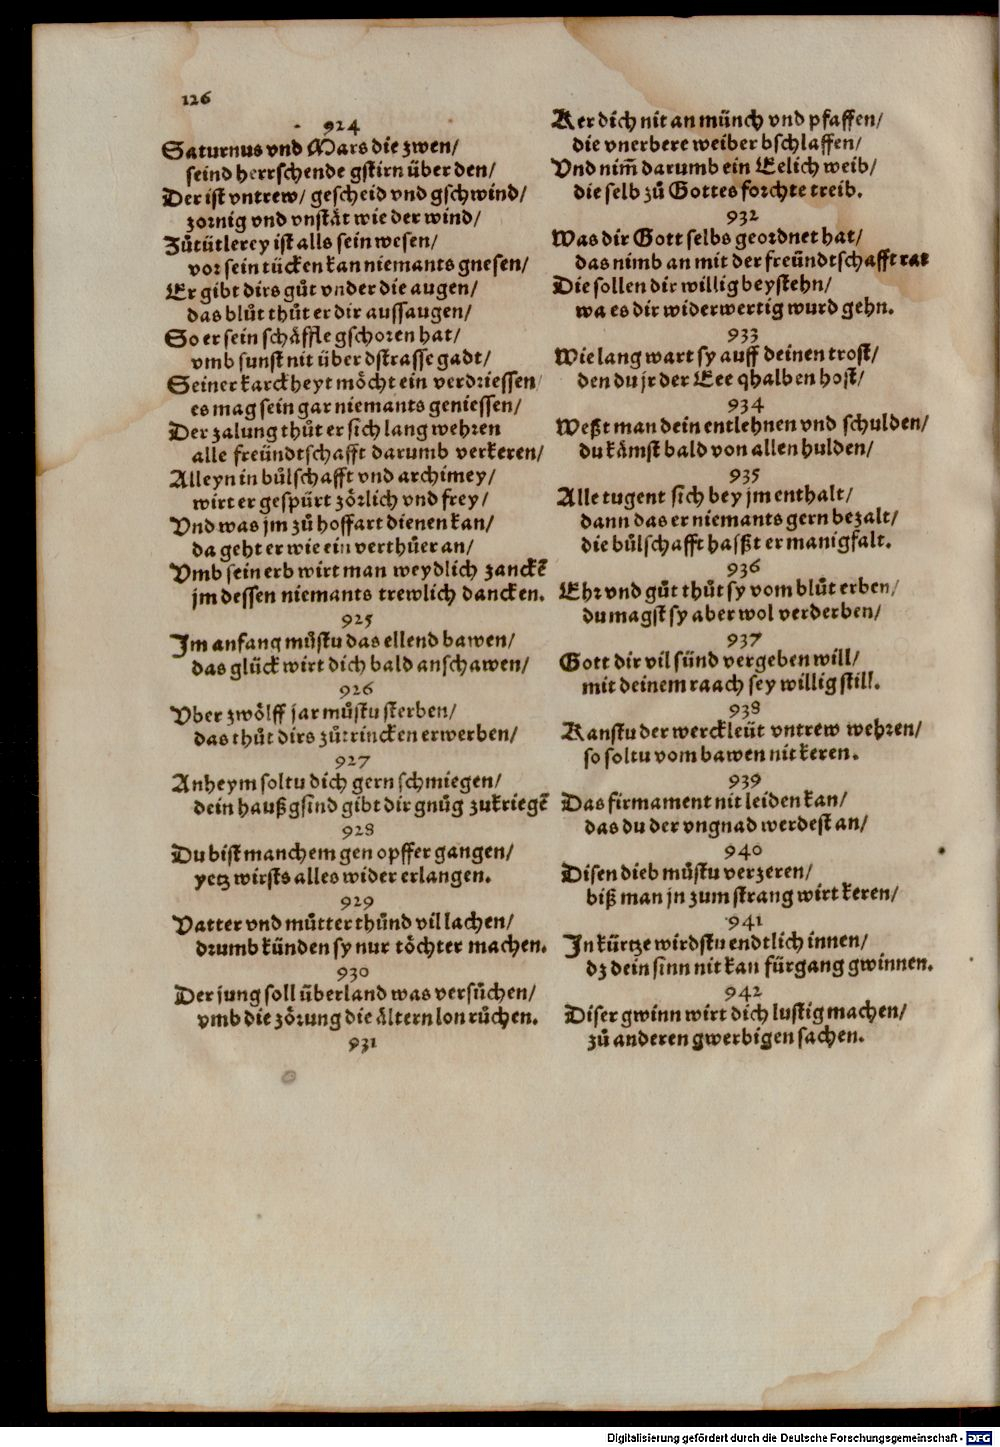 126
924
Saturnus vnd Mars die zwen/
seind herrschende gstirn über den/
Der ist vntrew/ gescheid vnd gschwind/
zornig vnd vnstät wie der wind/
Zůtütlerey ist alls sein wesen/
vor sein tücken kan niemants gnesen/
Er gibt dirs gůt vnder die augen/
das blůt thůt er dir aussaugen/
So er sein schäffle gschoren hat/
vmb sunst nit über dstrasse gadt/
Seiner karckheyt möcht ein verdriessen/
es mag sein gar niemants geniessen/
Der zalung thůt er sich lang wehren
alle freündtschafft darumb verkeren/
Alleyn in bůlschafft vnd archimey/
wirt er gespürt zörlich vnd frey/
Vnd was jm zů hoffart dienen kan/
da geht er wie ein verthůer an/
Vmb sein erb wirt man weydlich zanckē
jm dessen niemants trewlich dancken.
925
Im anfang můstu das ellend bawen/
das glück wirt dich bald anschawen/
926
Vber zwölff jar můstu sterben/
das thůt dirs zůtrincken erwerben/
927
Anheym soltu dich gern schmiegen/
dein haußgsind gibt dir gnůg zukriegē
928
Du bist manchem gen opffer gangen/
yetz wirsts alles wider erlangen.
929
Vatter vnd můtter thůnd vil lachen/
drumb künden sy nur töchter machen.
930
Der jung soll überland was versůchen/
vmb die zörung die ältern lon růchen.
931
Ker dich nit an münch vnd pfaffen/
die vnerbere weiber bschlaffen/
Vnd nim̄ darumb ein Eelich weib/
die selb zů Gottes forchte treib.
932
Was dir Gott selbs geordnet hat/
das nimb an mit der freündtschafft rat
Die sollen dir willig beystehn/
wa es dir widerwertig wurd gehn.
933
Wie lang wart sy auff deinen trost/
den du jr der Eee qhalben host/
934
Weßt man dein entlehnen vnd schulden/
du kämst bald von allen hulden/
935
Alle tugent sich bey jm enthalt/
dann das er niemants gern bezalt/
die bůlschafft haßßt er manigfalt.
936
Ehr vnd gůt thůt sy vom blůt erben/
du magst sy aber wol verderben/
937
Gott dir vil sünd vergeben will/
mit deinem raach sey willig still.
938
Kanstu der werckleüt vntrew wehren/
so soltu vom bawen nit keren.
939
Das firmament nit leiden kan/
das du der vngnad werdest an/
940
Disen dieb můstu verzeren/
biß man jn zum strang wirt keren/
941
In kürtze wirdstu endtlich innen/
dz dein sinn nit kan fürgang gwinnen.
942
Diser gwinn wirt dich lustig machen/
zů anderen gwerbigen sachen.
Digitalisierung gefördert durch die Deutsche Forschungsgemeinschaft - DFG